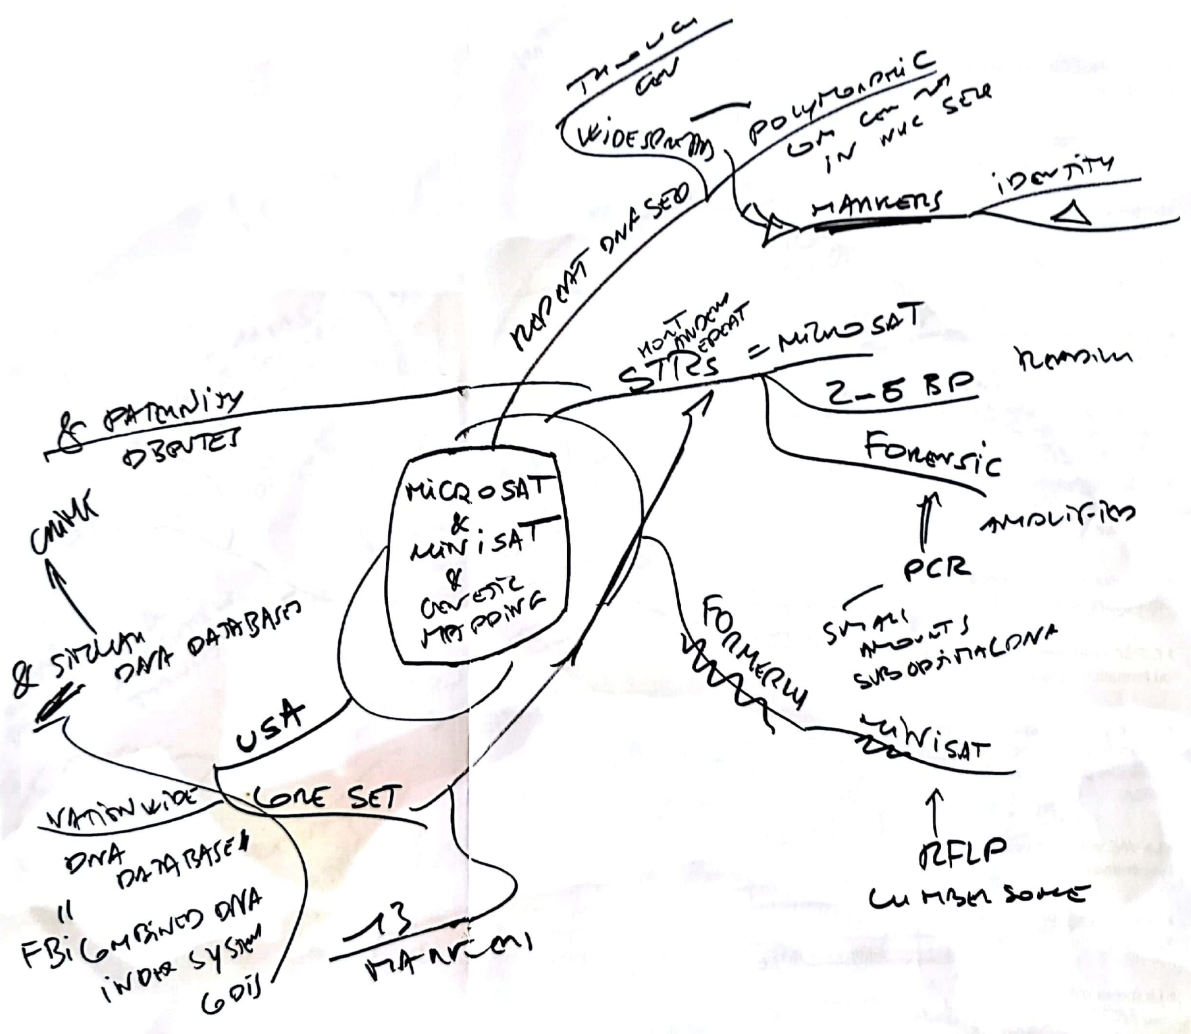 THROUGH
GEN
WIDESPREAD
POLYMORPHIC
IN NUC SEQ
REPEAT DNA SEQ
MARKERS
IDENTITY
SHORT TANDEM REPEAT
STRS = MICROSAT
2-5 BP
FORENSIC
AMPLIFIED
PCR
SMALL
AMOUNTS
SUBOPTIMAL DNA
& PATERNITY
DISPUTES
MICROSAT
&
MINISAT
&
GENETIC
MAPPING
FORMERLY
MINISAT
RFLP
CUMBERSOME
CRIME
& SIMILAR
DNA DATABASES
USA
CORE SET
NATIONWIDE
DNA
DATABASE
"
FBI COMBINED DNA
INDEX SYSTEM
CODIS
13
MARKERS